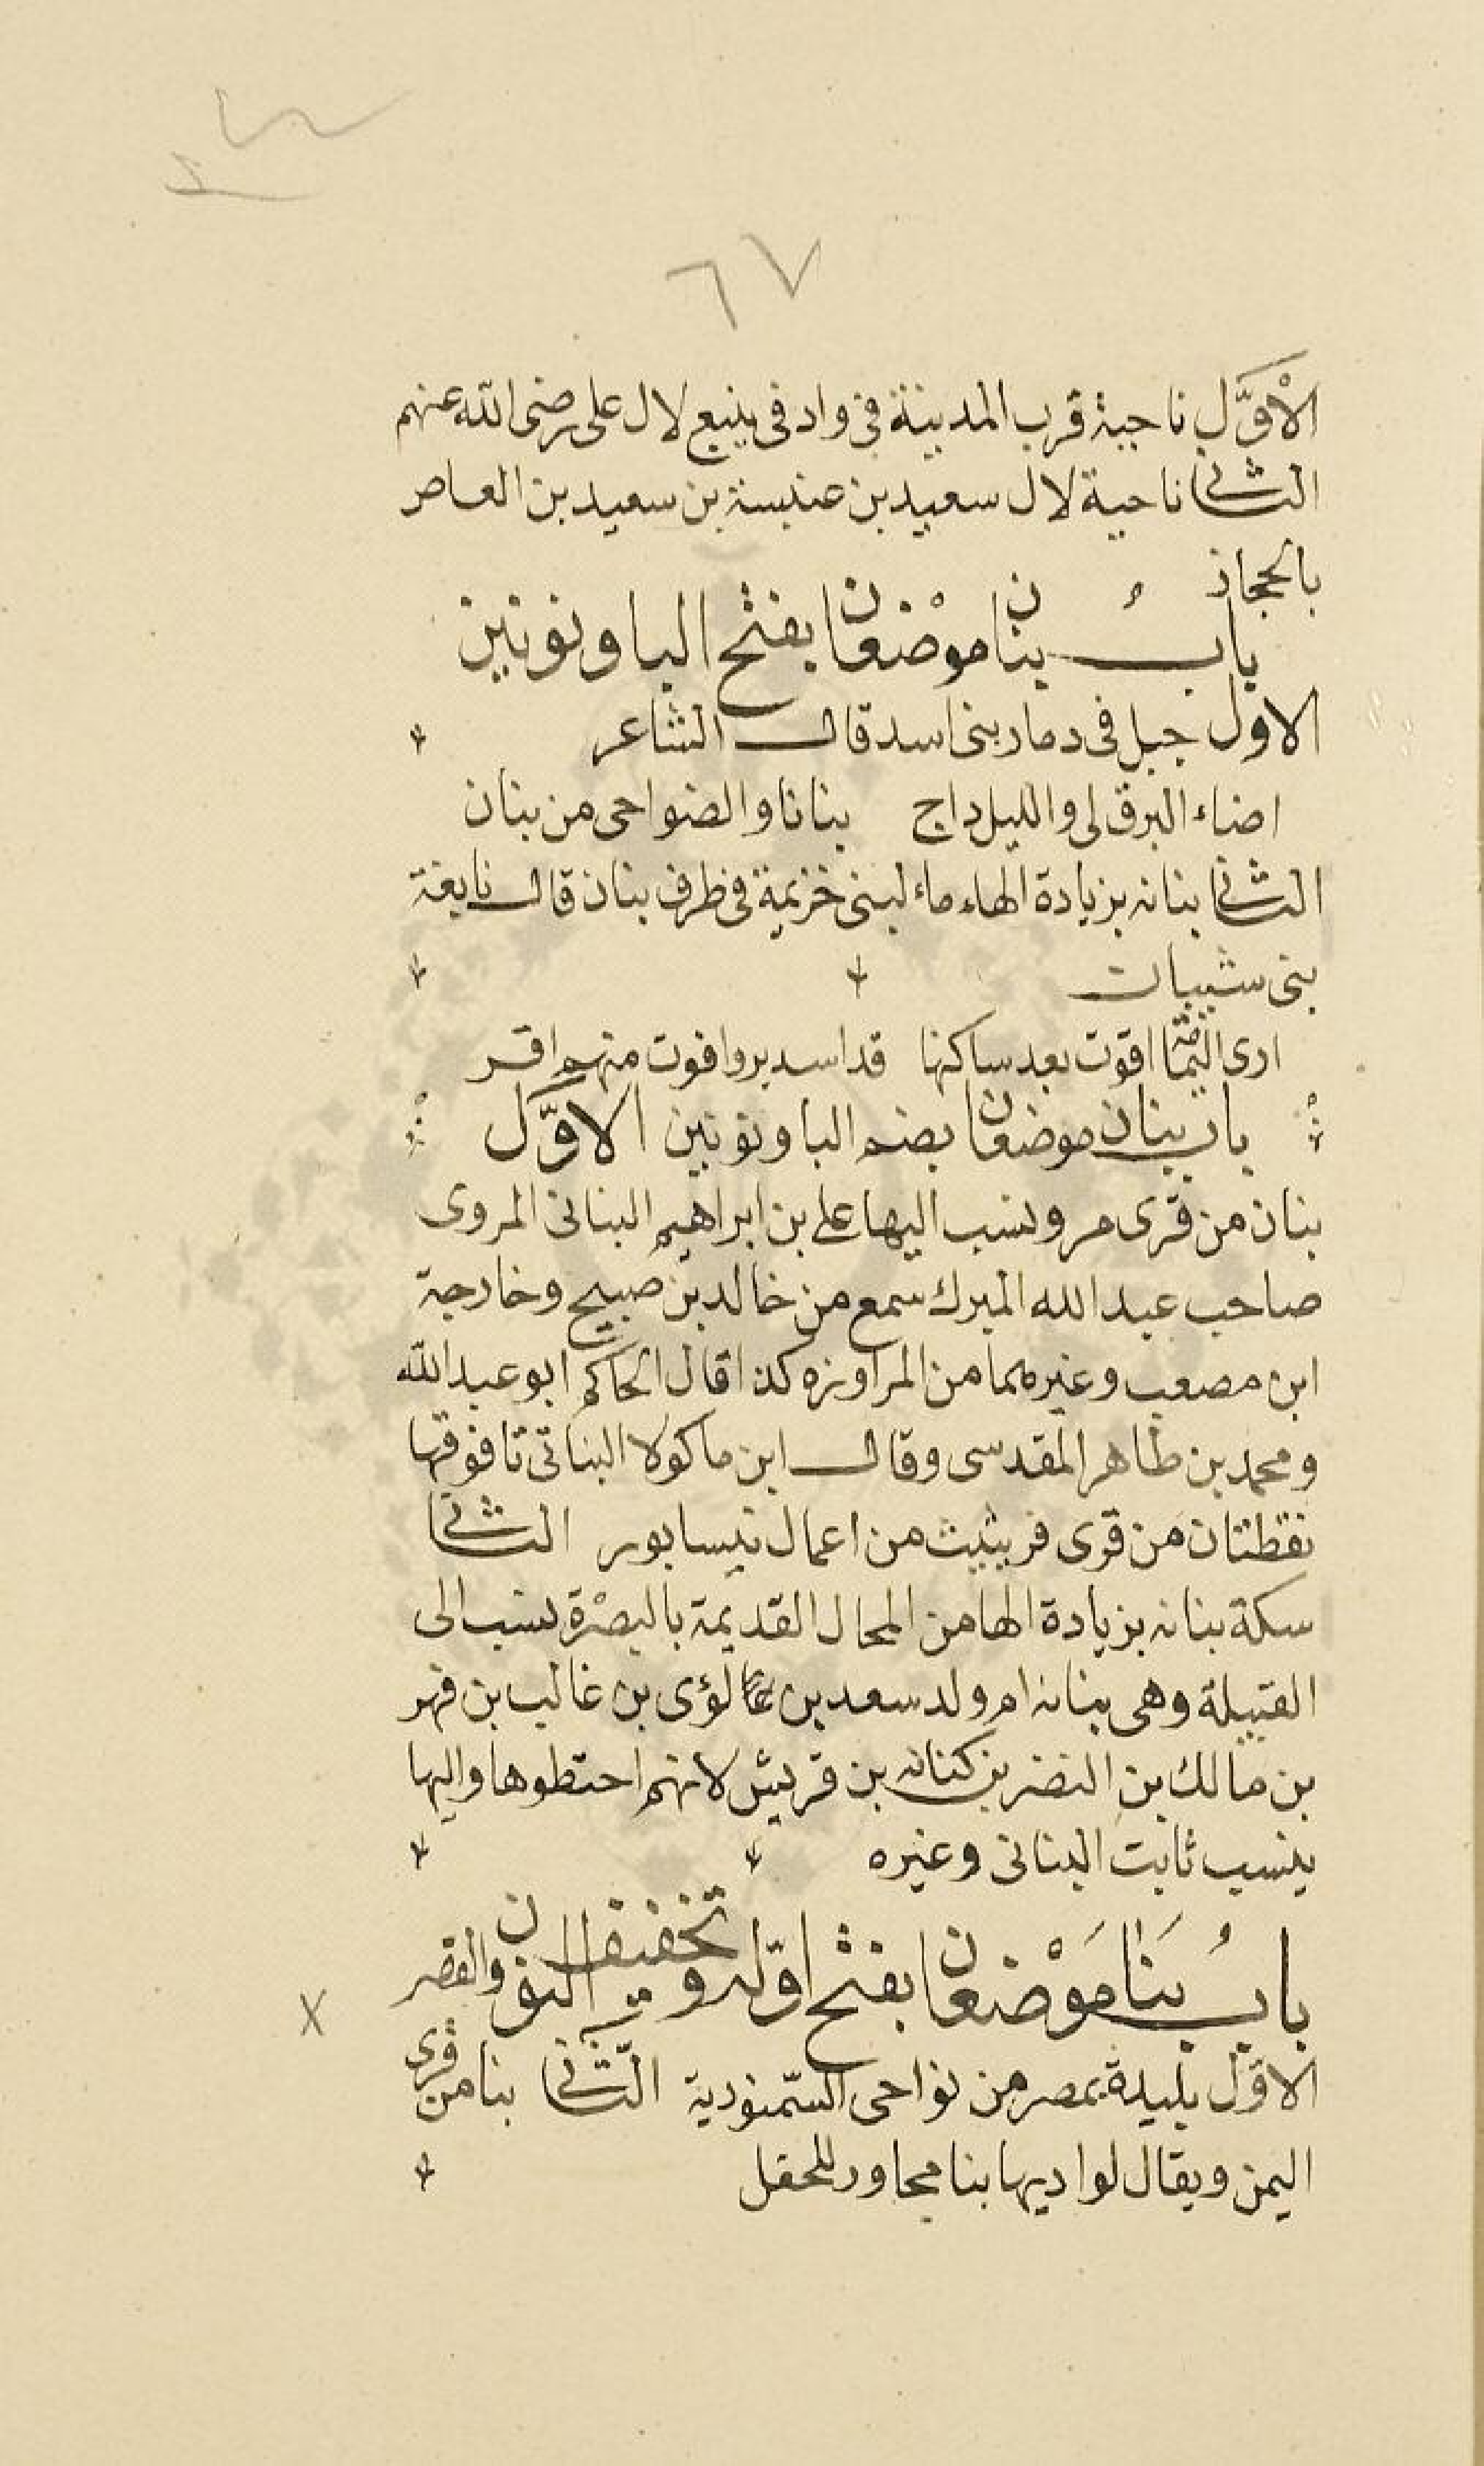 ٦٧
الأوَّل ناحية قرب المدينة فى واد فى ينبع لال على رضى الله عنهم
الثانى ناحية لال سعيد بن عنبسة بن سعيد بن العاص
بالحجاز
بابُ بنان موضعان بفتح البا ونونين
الاول جبل فى دمار بنى اسد قال الشاعر
اضاء البرق لى والليل داج بنانا والضواحى من بنان
الثانى بنانه بزيادة الهاء ماء لبنى خزيمة فى ظرف بنان قال نابغة
بنى شيبان
ارى اقوت بعد ساكنها قد اسد بروا فوت منهم اقر
باب بنان موضعان بضم البا ونونين الاوَّل
بنان من قرى مرو نسب اليها على بن ابراهيم البنانى المروى
صاحب عبد الله المبرك سمع من خالد بن صبيح وخارجة
ابن مصعب وغيرهما من المراوزه كذا قال الحاكم ابو عبد الله
ومحمد بن طاهر المقدسى وقال ابن ماكولا البناتى تا فوقها
نقطتان من قرى فربثيث من اعمال نيسابور الثانى
سكة بنانه بزيادة الها من المحال القديمة بالبصْرة نسب الى
القبيلة وهى بنانه ام ولد سعد بن لؤى بن غالب بن فهر
بن مالك بن النضر بن كنانه بن قريش لانهم احتطوها واليها
ينسب ثابت البنانى وغيره
بابُ بَنَا مَوْضعان بفتح اوّله وتخفيف النون والقصر
الاوّل بليدة بمصر من نواحى السّمنودية الثّانى بنا من قرى
اليمن ويقال لواديها بنا مجاور للحقل